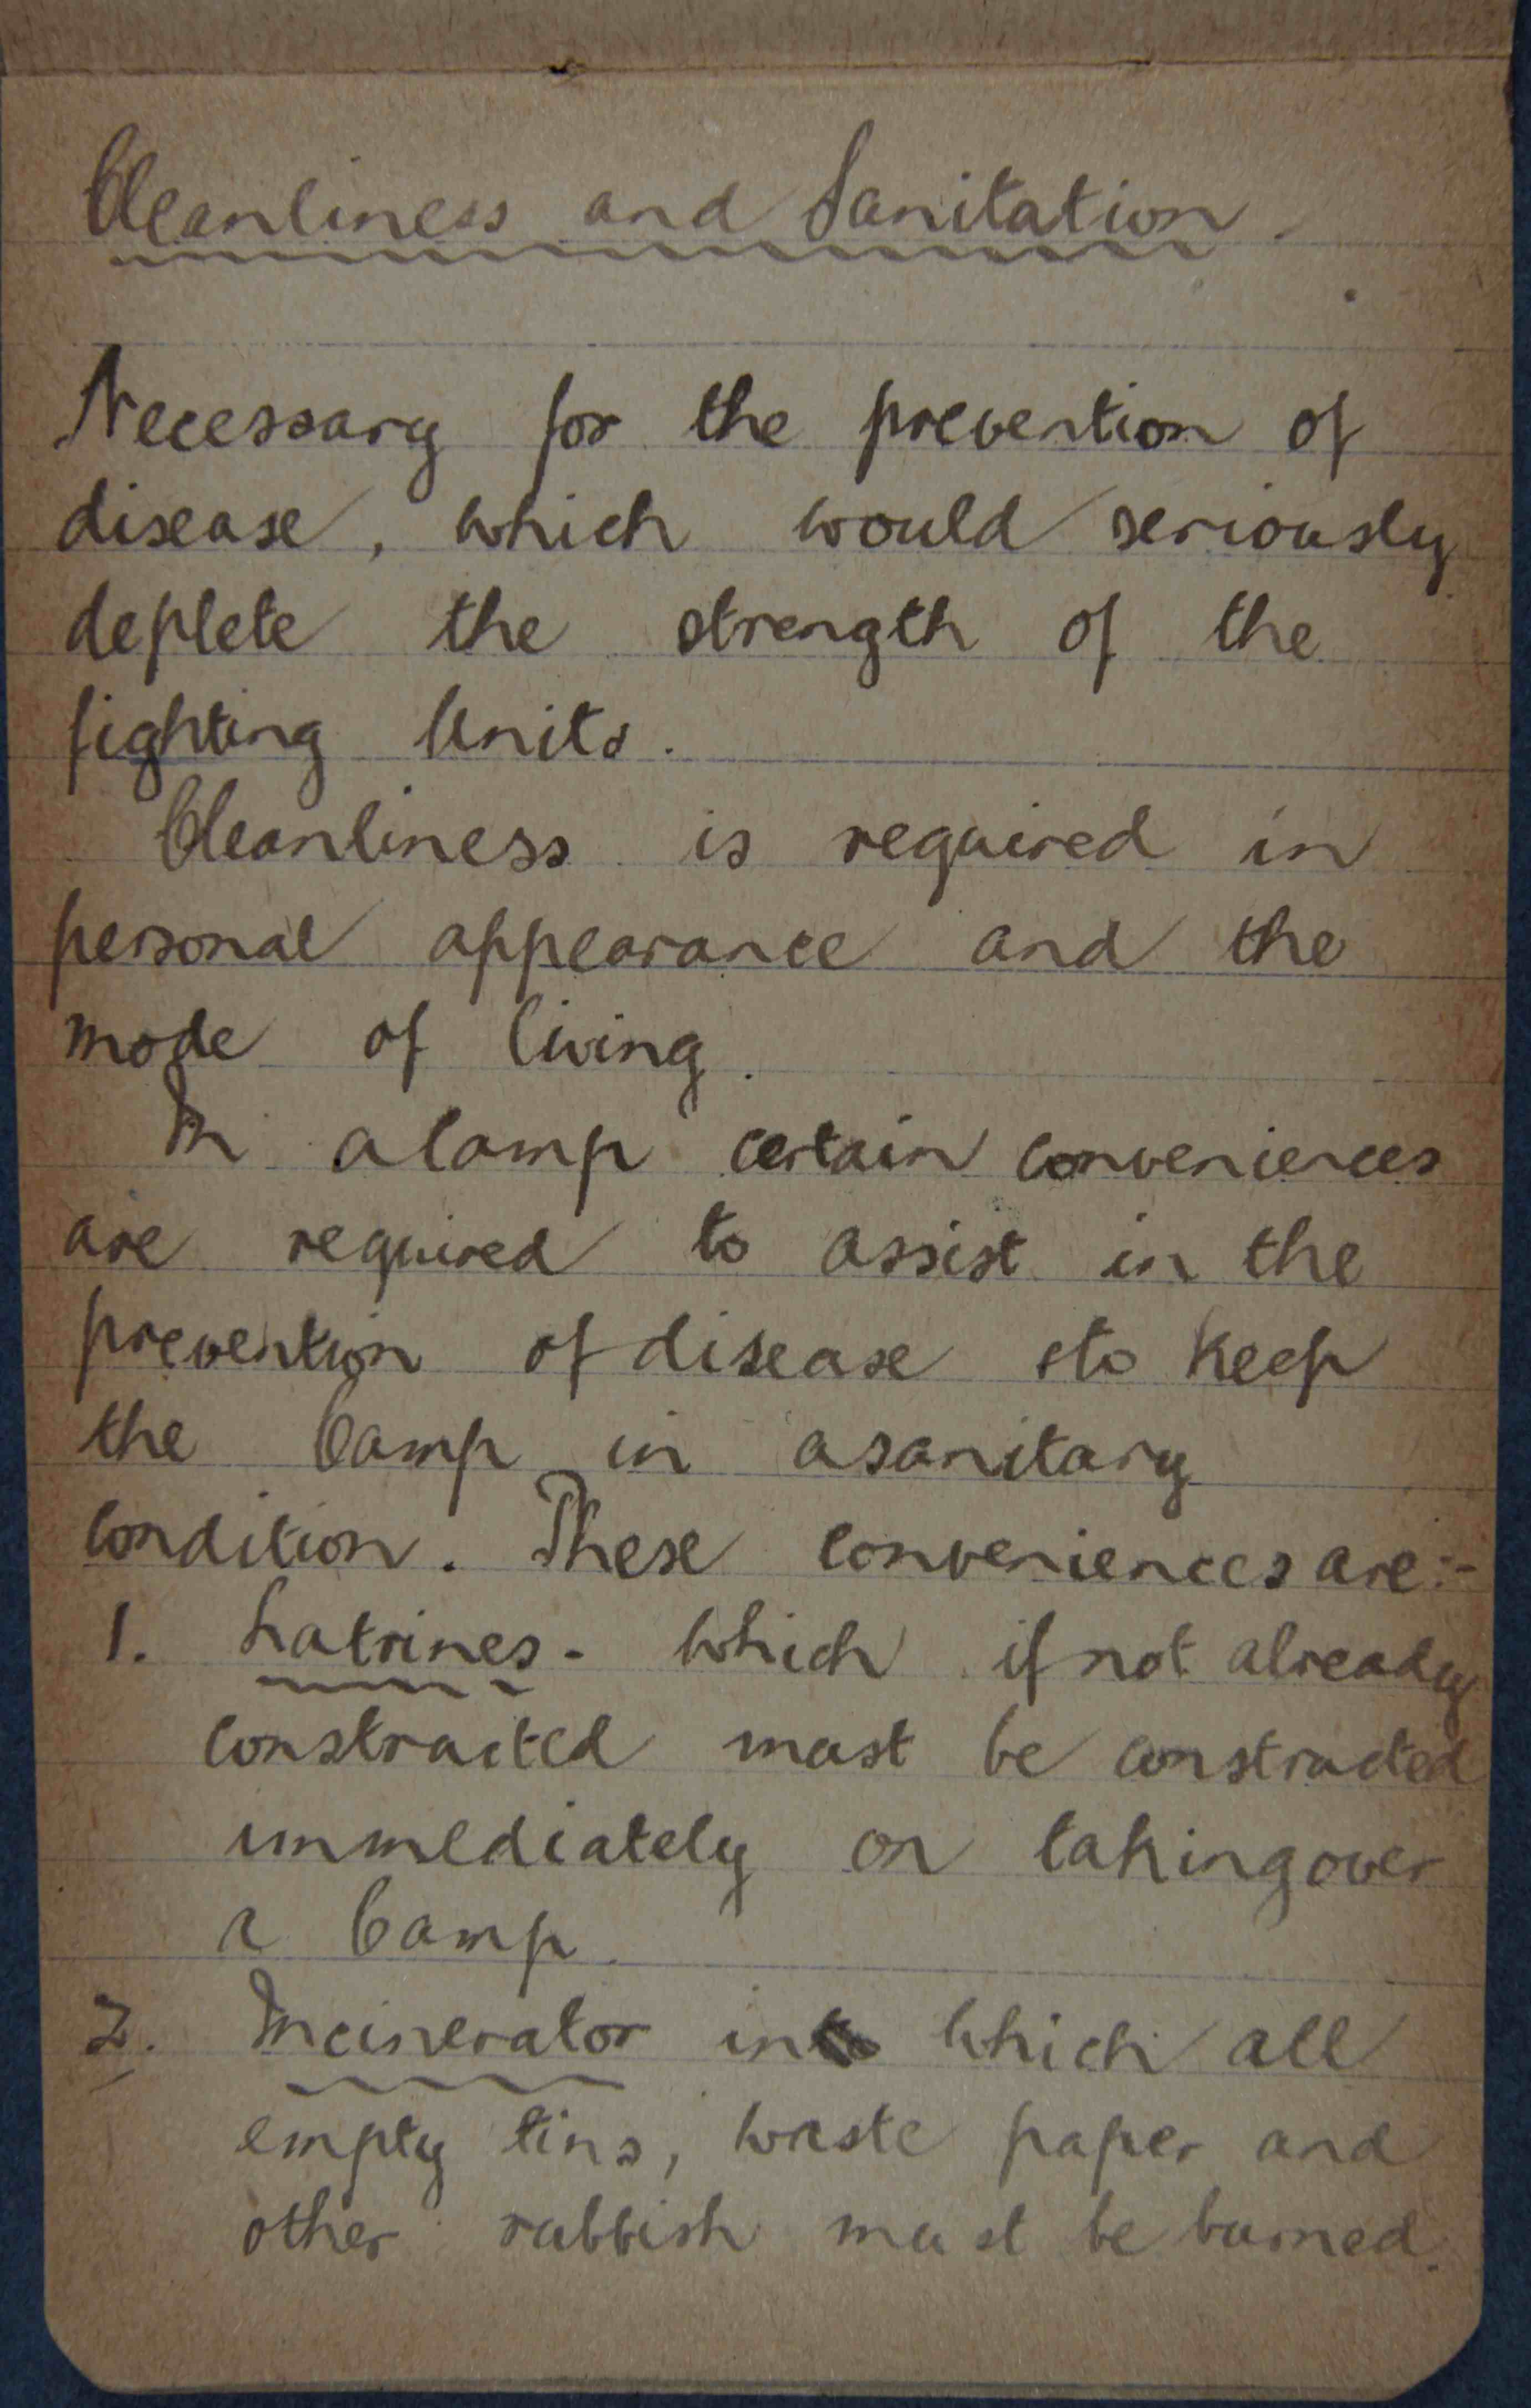 Cleanliness and Sanitation.
Necessary for the prevention of
disease, which would seriously
deplete the strength of the
fighting Units.
Cleanliness is required in
personal appearance and the
mode of living.
In a Camp certain conveniences
are required to assist in the
prevention of disease & to keep
the Camp in a sanitary
condition. These conveniences are:-
1. Latrines - which if not already
constructed must be constructed
immediately on taking over
a Camp.
2. Incinerator in which all
empty tins, waste paper and
other rubbish must be burned.